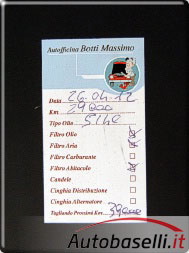 Autofficina Botti Massimo
Data 26.04.12
Km 29000
Tipo Olio
Filtro Olio
Filtro Aria
Filtro Carburante
Filtro Abitacolo
Candele
Cinghia Distribuzione
Cinghia Alternatore
Tagliando Prossimi Km
Autobaselli.it